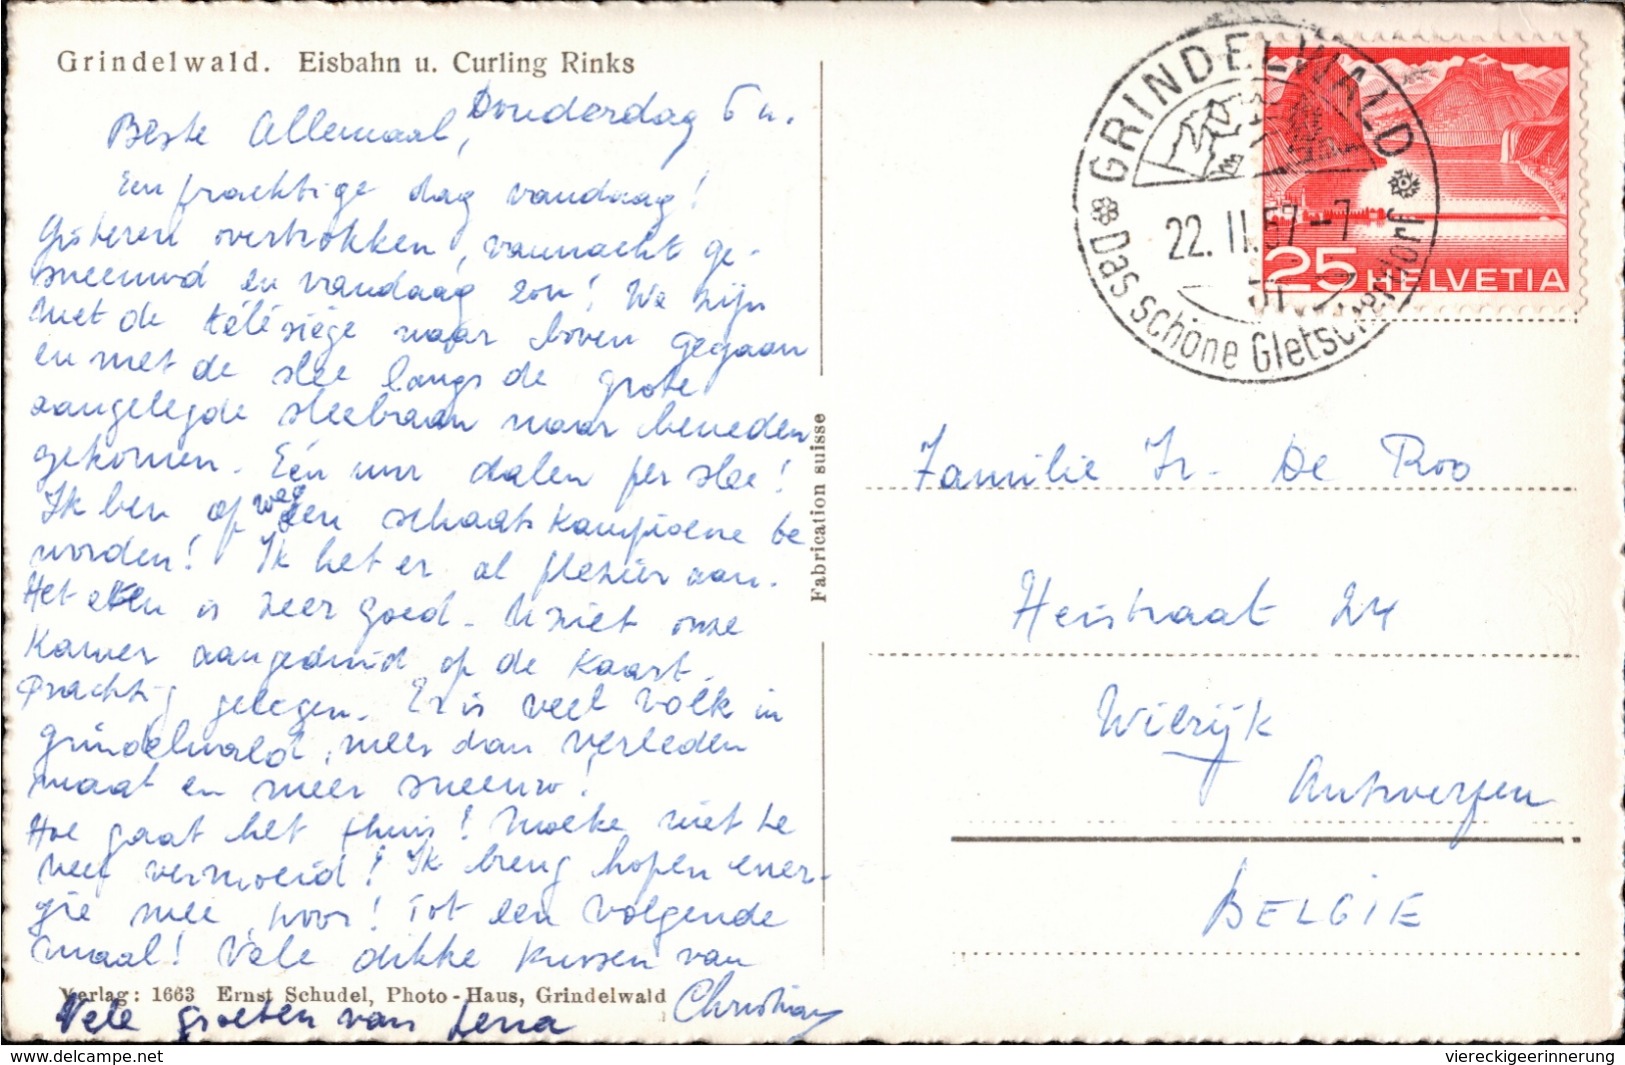 Grindelwald. Eisbahn u. Curling Rinks
Donderdag 5 u.
Beste Allemaal,
Een prachtige dag vandaag!
Gisteren overtrokken, vannacht ge-
sneeuwd en vandaag zon! We zijn
met de télésiège naar boven gegaan
en met de slee langs de grote
aangelegde sleebaan naar beneden
gekomen. Eén uur dalen per slee!
Ik ben op weg een schaatskampioene te
worden! Ik het er al plezier aan.
Het eten is zeer goed. U ziet onze
kamer aangeduid op de kaart.
Prachtig gelegen. Er is veel volk in
Grindelwald, meer dan verleden
maal en meer sneeuw!
Hoe gaat het thuis! Moeke niet te
veel vermoeid! Ik breng hopen ener-
gie mee, hoor! Tot een volgende
maal! Vele dikke kussen van
Christiane
Verlag: 1663 Ernst Schudel, Photo-Haus, Grindelwald
Vele groeten van
Fabrication suisse
GRINDELWALD
22. II. 57 - 7
Das schöne Gletscherdorf
25 HELVETIA
Familie Fr. De Roo
Heistraat 24
Wilrijk
Antwerpen
BELGIE
delcampe.net
viereckigeerinnerung